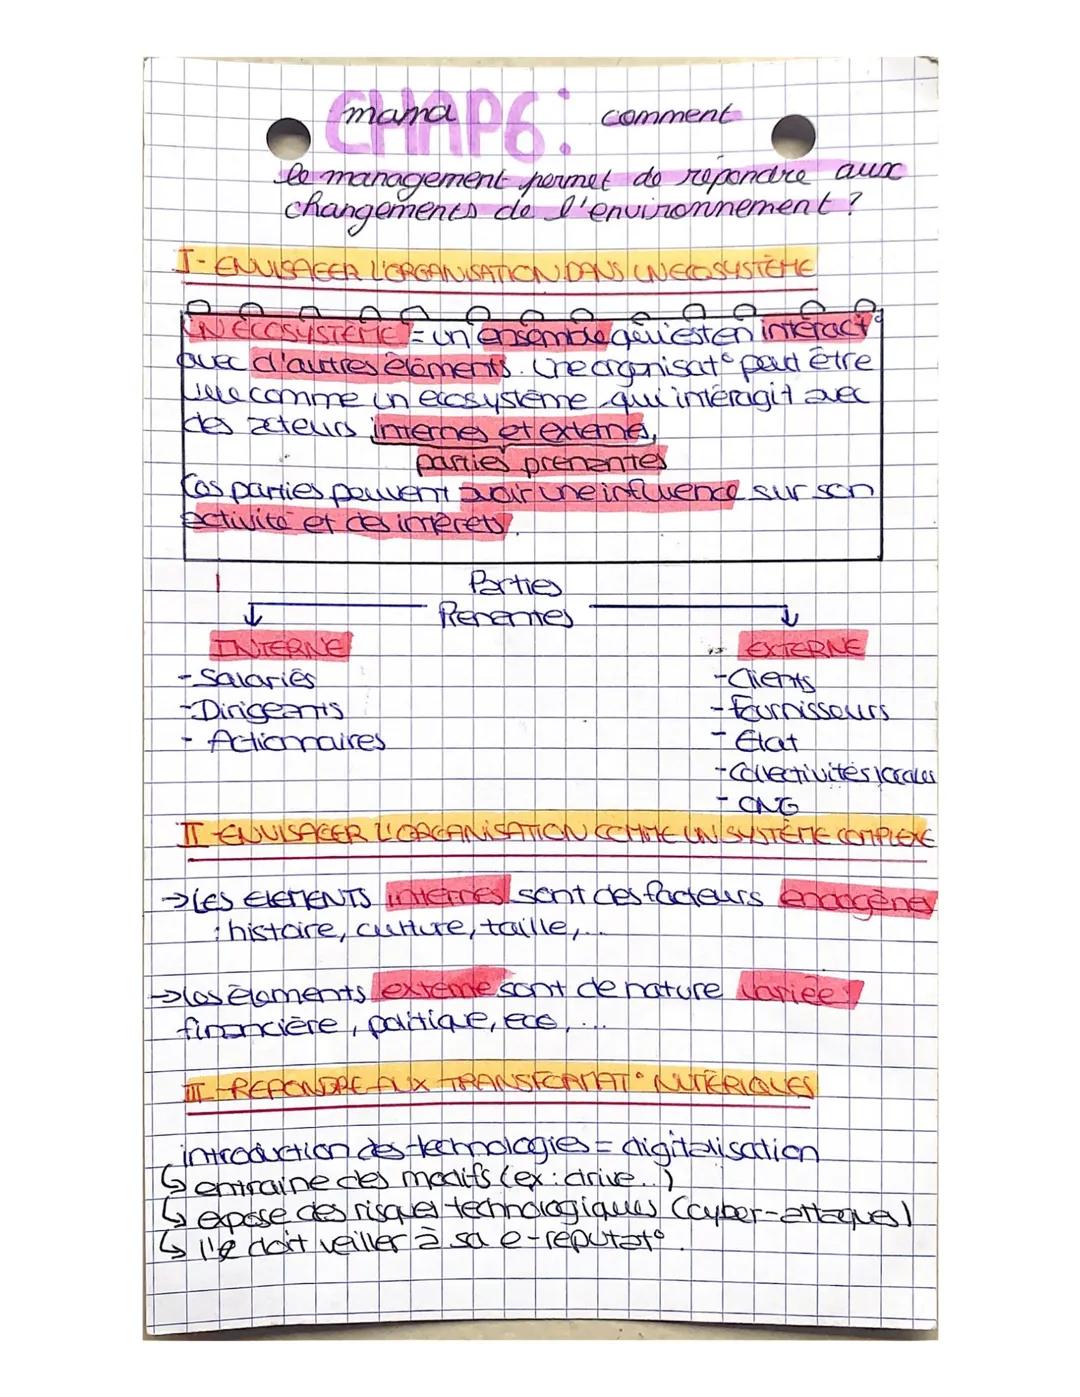 mana CHAP6: comment
le management permet de répondre aux
changements de l'environnement ?
I- ENVISAGER L'ORGANISATION DANS UN ECOSYSTÈME
UN ECOSYSTÈME = un ensemble qui est en interact°
avec d'autres éléments. Une organisat° peut être
vue comme un ecosystème qui intéragit avec
des acteurs internes et externes,
parties prenantes
Ces parties peuvent avoir une influence sur son
activité et des intérets.
Parties
Prenantes
INTERNE
- Salariés
- Dirigeants
- Actionnaires
EXTERNE
- Clients
- Fournisseurs
- Etat
- Collectivités locales
- ONG
II - ENVISAGER L'ORGANISATION COMME UN SYSTÈME COMPLEXE
→ LES ELEMENTS internes sont des facteurs endogènes
: histoire, culture, taille,...
→ les éléments externe sont de nature variée :
financière, politique, eco,...
III - REPONDRE AUX TRANSFORMAT° NUMÉRIQUES
introduction des technologies = digitalisation
↳ entraine des modifs (ex : drive..)
↳ expose des risques technologiques (cyber-attaques)
↳ l'e doit veiller à sa e-reputat°.